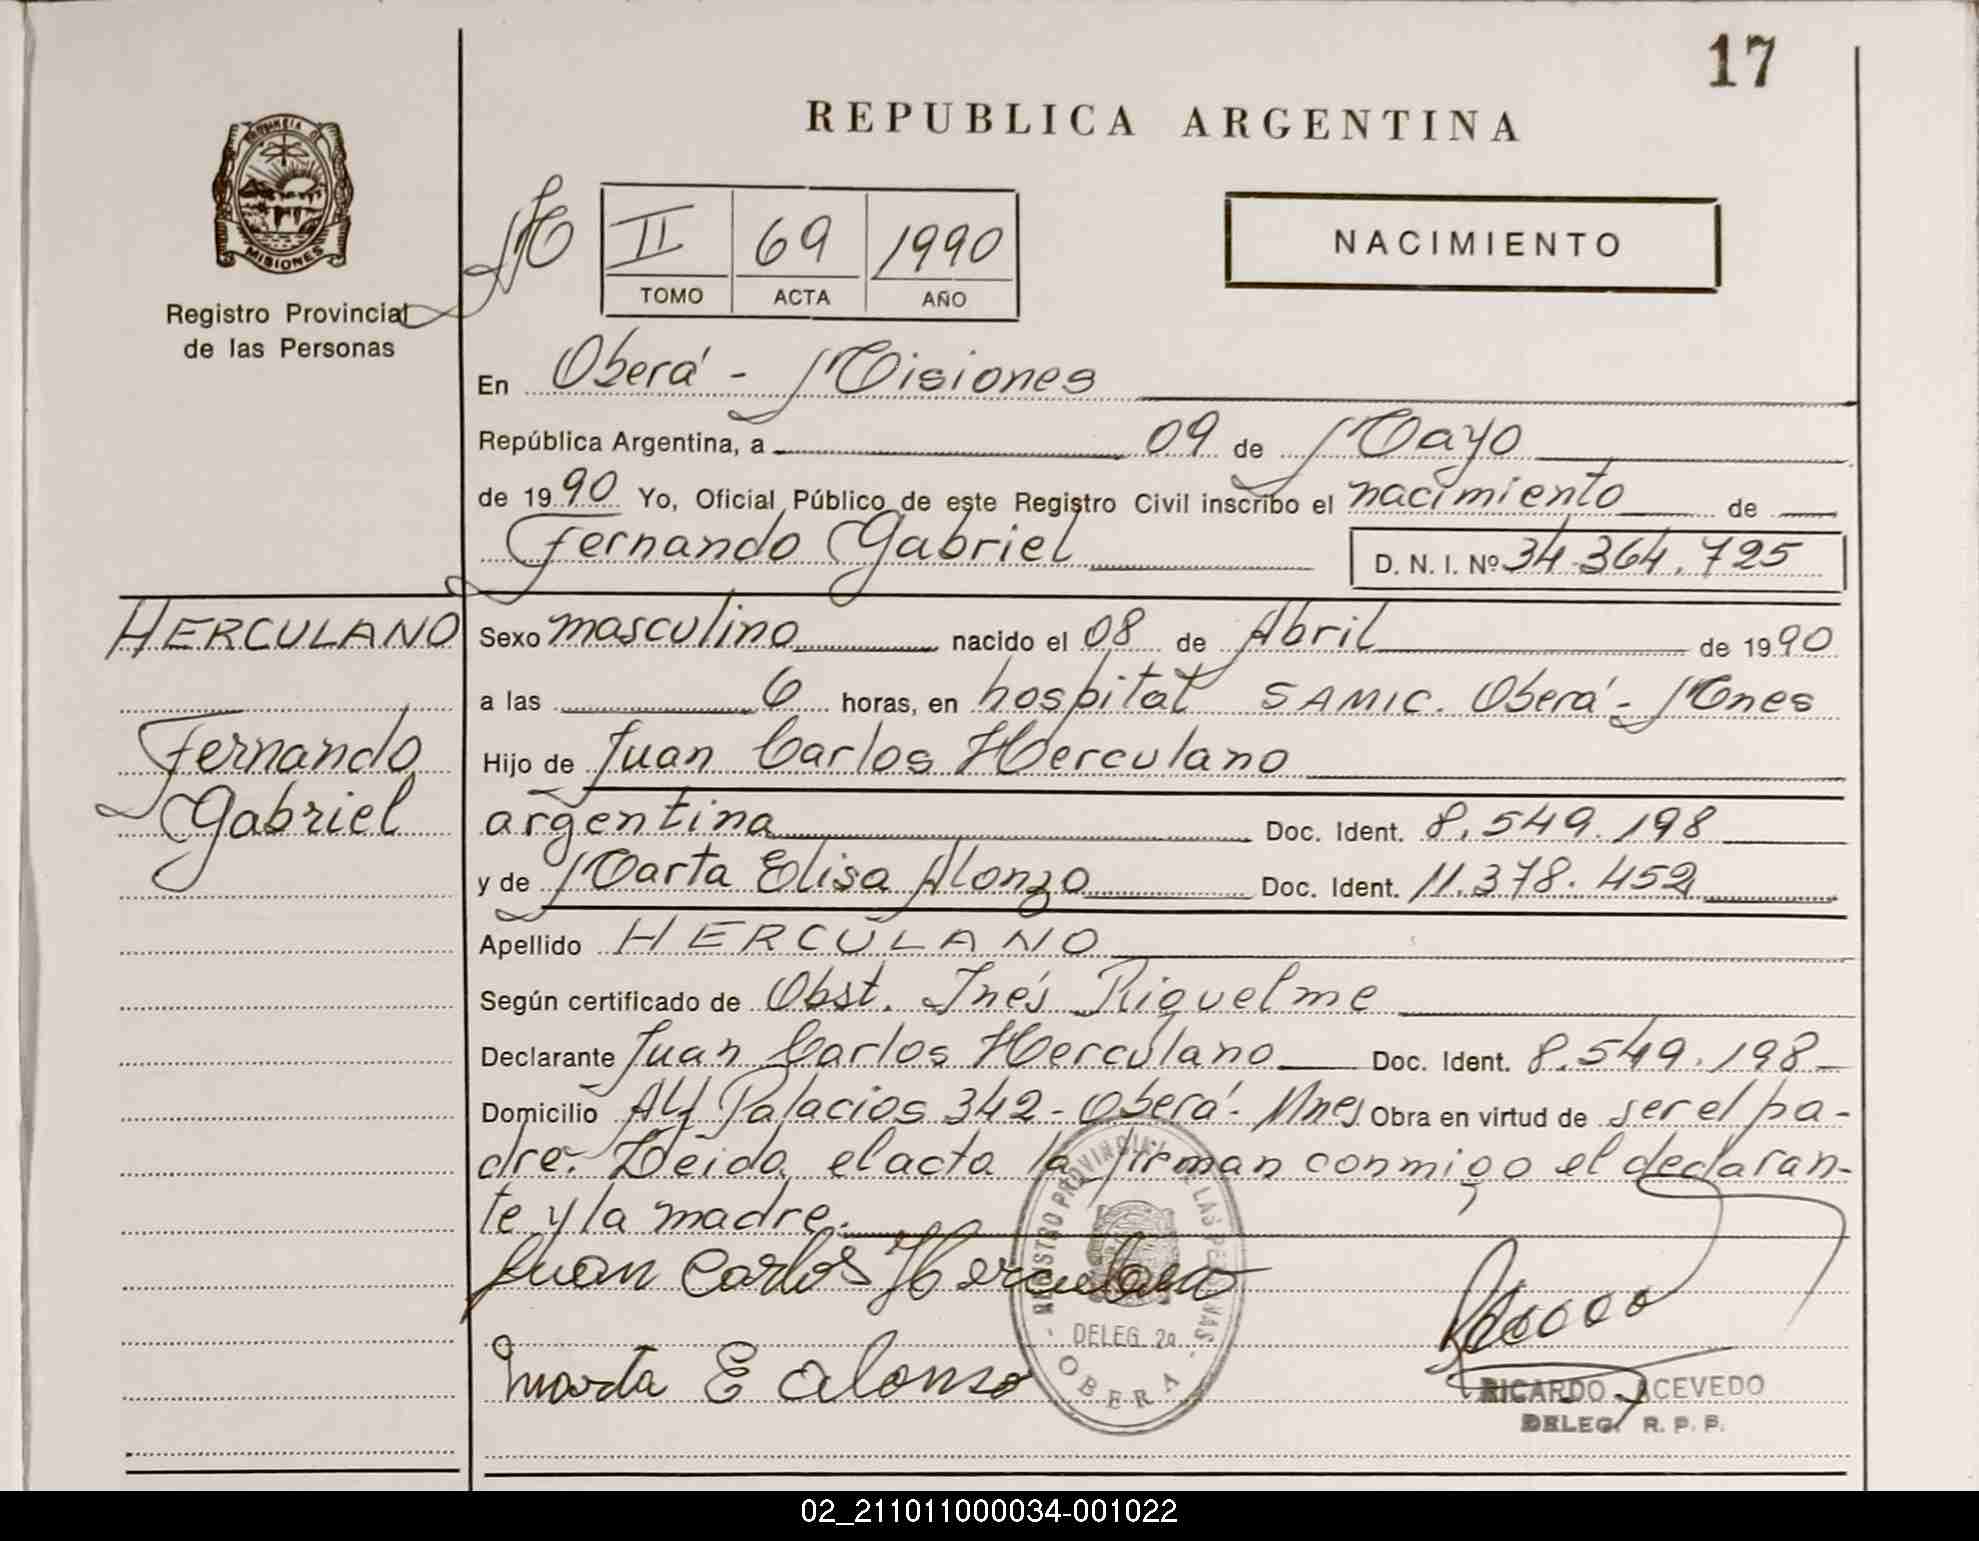 17
REPUBLICA ARGENTINA
PROVINCIA D
MISIONES
Registro Provincial
de las Personas
II 69 1990
TOMO ACTA AÑO
NACIMIENTO
En Oberá - Misiones
República Argentina, a 09 de Mayo
de 1990 Yo, Oficial Público de este Registro Civil inscribo el nacimiento de
Fernando Gabriel D. N. I. Nº 34.364.725
HERCULANO
Fernando
Gabriel
Sexo masculino nacido el 08 de Abril de 1990
a las 6 horas, en hospital SAMIC. Oberá - Mnes
Hijo de Juan Carlos Herculano
argentina Doc. Ident. 8.549.198
y de Marta Elisa Alonzo Doc. Ident. 11.378.452
Apellido HERCULANO
Según certificado de Obst. Inés Riquelme
Declarante Juan Carlos Herculano Doc. Ident. 8.549.198
Domicilio Alf Palacios 342 - Oberá - Mnes Obra en virtud de ser el pa-
dre. Leida el acta la firman conmigo el declaran-
te y la madre.
Juan Carlos Herculano
Marta E Alonso
REGISTRO PROVINCIAL DE LAS PERSONAS
DELEG. 2a
OBERA
RICARDO ACEVEDO
DELEG. R. P. P.
02_211011000034-001022